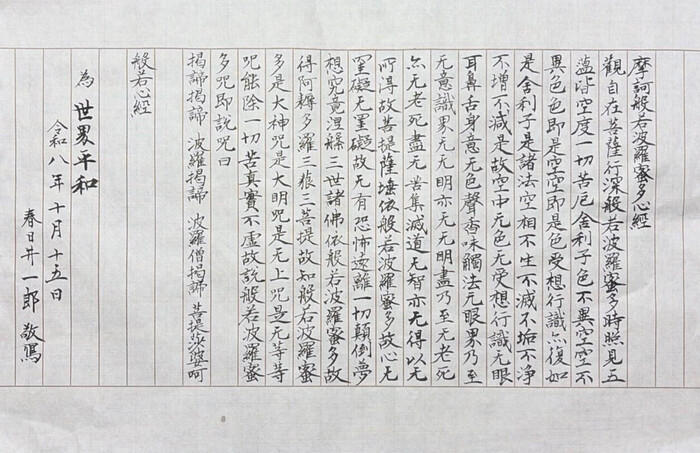 摩訶般若波羅蜜多心經
觀自在菩薩行深般若波羅蜜多時照見五
薀皆空度一切苦厄舍利子色不異空空不
異色色即是空空即是色受想行識亦復如
是舍利子是諸法空相不生不滅不垢不浄
不增不減是故空中无色无受想行識无眼
耳鼻舌身意无色聲香味觸法无眼界乃至
无意識界无无明亦无无明盡乃至无老死
亦无老死盡无苦集滅道无智亦无得以无
所得故菩提薩埵依般若波羅蜜多故心无
罣礙无罣礙故无有恐怖遠離一切顛倒夢
想究竟涅槃三世諸佛依般若波羅蜜多故
得阿耨多羅三藐三菩提故知般若波羅蜜
多是大神咒是大明咒是无上咒是无等等
咒能除一切苦真實不虚故説般若波羅蜜
多咒即説咒曰
揭諦揭諦 波羅揭諦 波羅僧揭諦 菩提莎婆呵
般若心經
為 世界平和
令和八年十月十五日
春日井一郎 敬寫